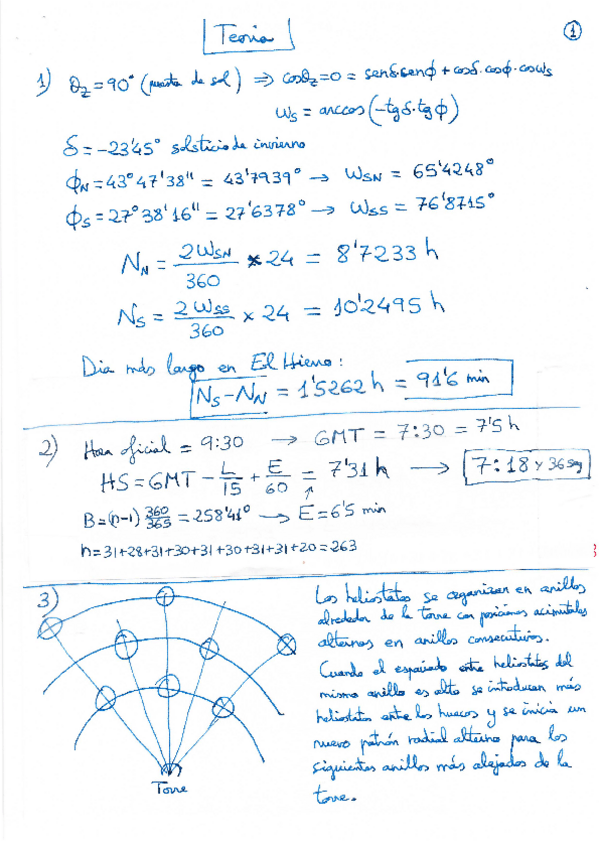 Teoria
1
1) θz = 90° (puesta de sol) ⇒ cosθz = 0 = senδ·senϕ + cosδ·cosϕ·cosωs
ωs = arccos(-tgδ·tgϕ)
δ = -23'45° solsticio de invierno
ϕN = 43° 47' 38'' = 43'7939° → ωSN = 65'4248°
ϕS = 27° 38' 16'' = 27'6378° → ωSS = 76'8715°
NN = 2ωSN/360 × 24 = 8'7233 h
NS = 2ωSS/360 × 24 = 10'2495 h
Dia más largo en El Hierro:
NS - NN = 1'5262 h = 91'6 min
2) Hora oficial = 9:30 → GMT = 7:30 = 7'5 h
HS = GMT - L/15 + E/60 = 7'31 h → 7:18 y 36 seg
B = (n-1) 360/365 = 258'41° → E = 6'5 min
n = 31+28+31+30+31+30+31+31+20 = 263
3)
Los heliostatos se organizan en anillos
alrededor de la torre con posiciones acimutales
alternas en anillos consecutivos.
Cuando el espaciado entre heliostatos del
mismo anillo es alto se introducen más
heliostatos entre los huecos y se inicia un
nuevo patrón radial alterno para los
siguientes anillos más alejados de la
torre.
Torre